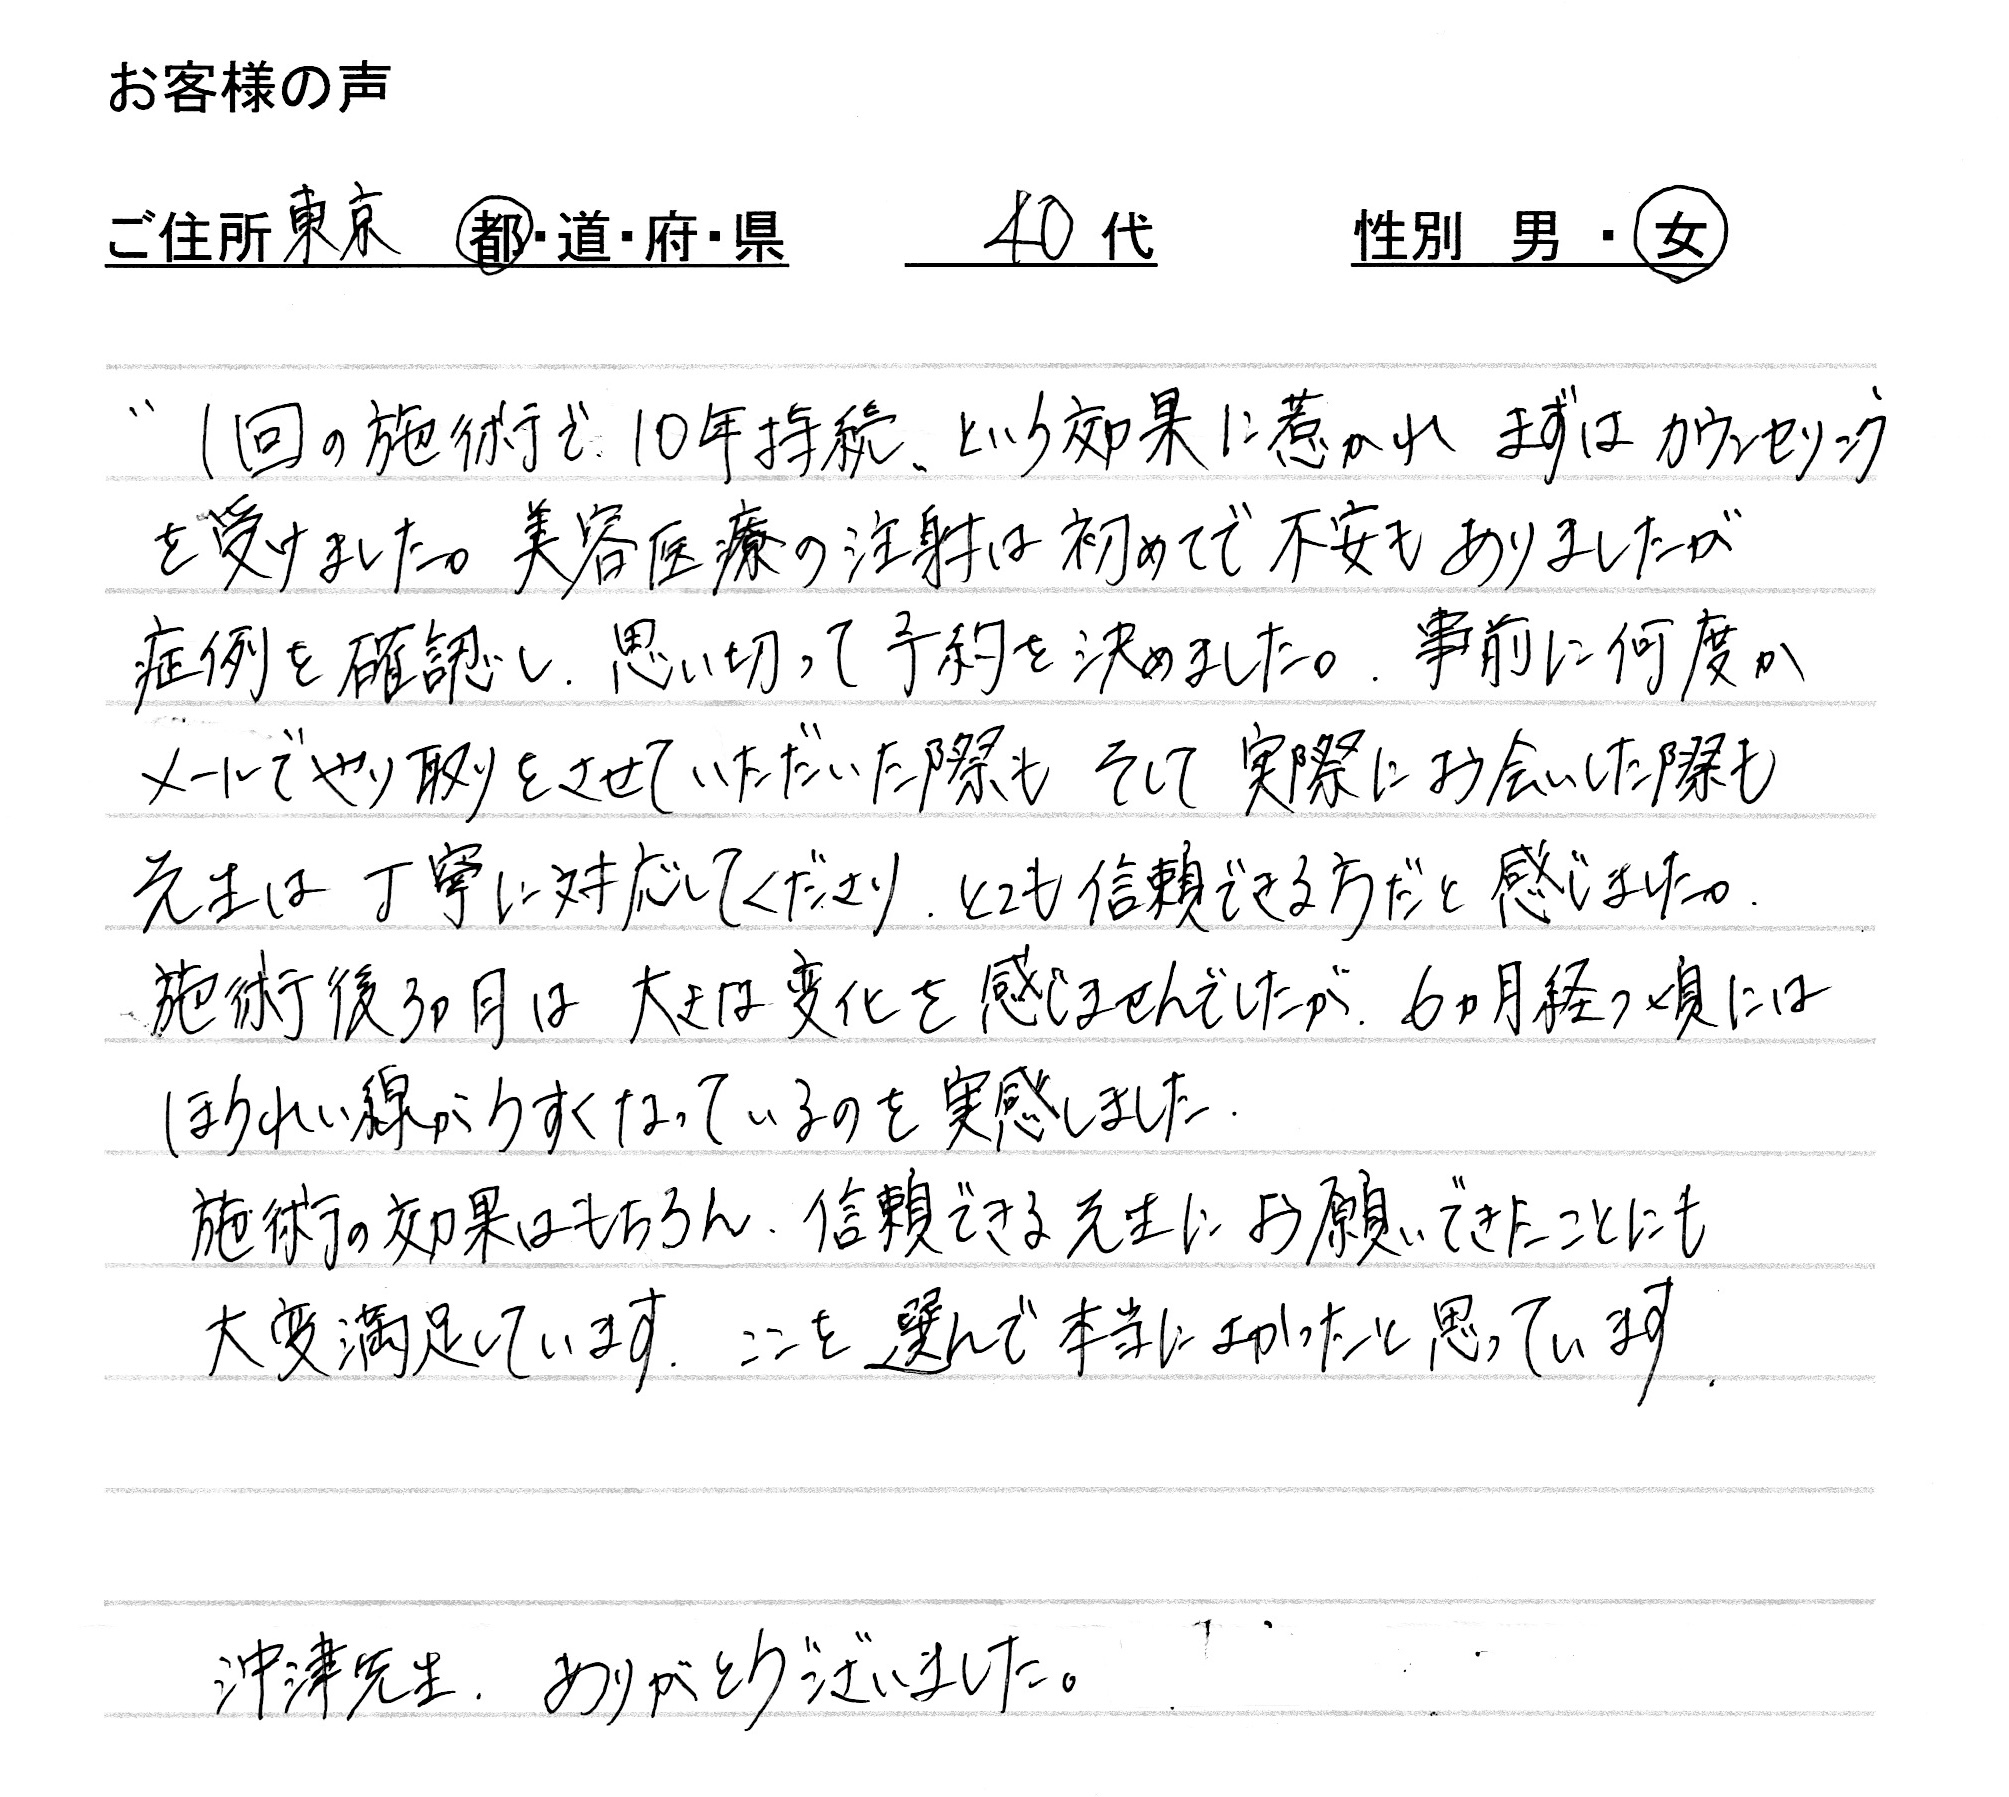 お客様の声
ご住所 東京 都・道・府・県 40代 性別 男・女
〝1回の施術で10年持続〟という効果に惹かれ まずはカウンセリング
を受けました。美容医療の注射は初めてで不安もありましたが
症例を確認し、思い切って予約を決めました。事前に何度か
メールでやり取りをさせていただいた際も そして 実際にお会いした際も
先生は丁寧に対応してくださり、とても信頼できる方だと感じました。
施術後3ヵ月は 大きな変化を感じませんでしたが、6ヵ月経つ頃には
ほうれい線がうすくなっているのを実感しました。
施術の効果はもちろん、信頼できる先生にお願いできたことにも
大変満足しています。ここを選んで本当によかったと思っています。
沖津先生、ありがとうございました。